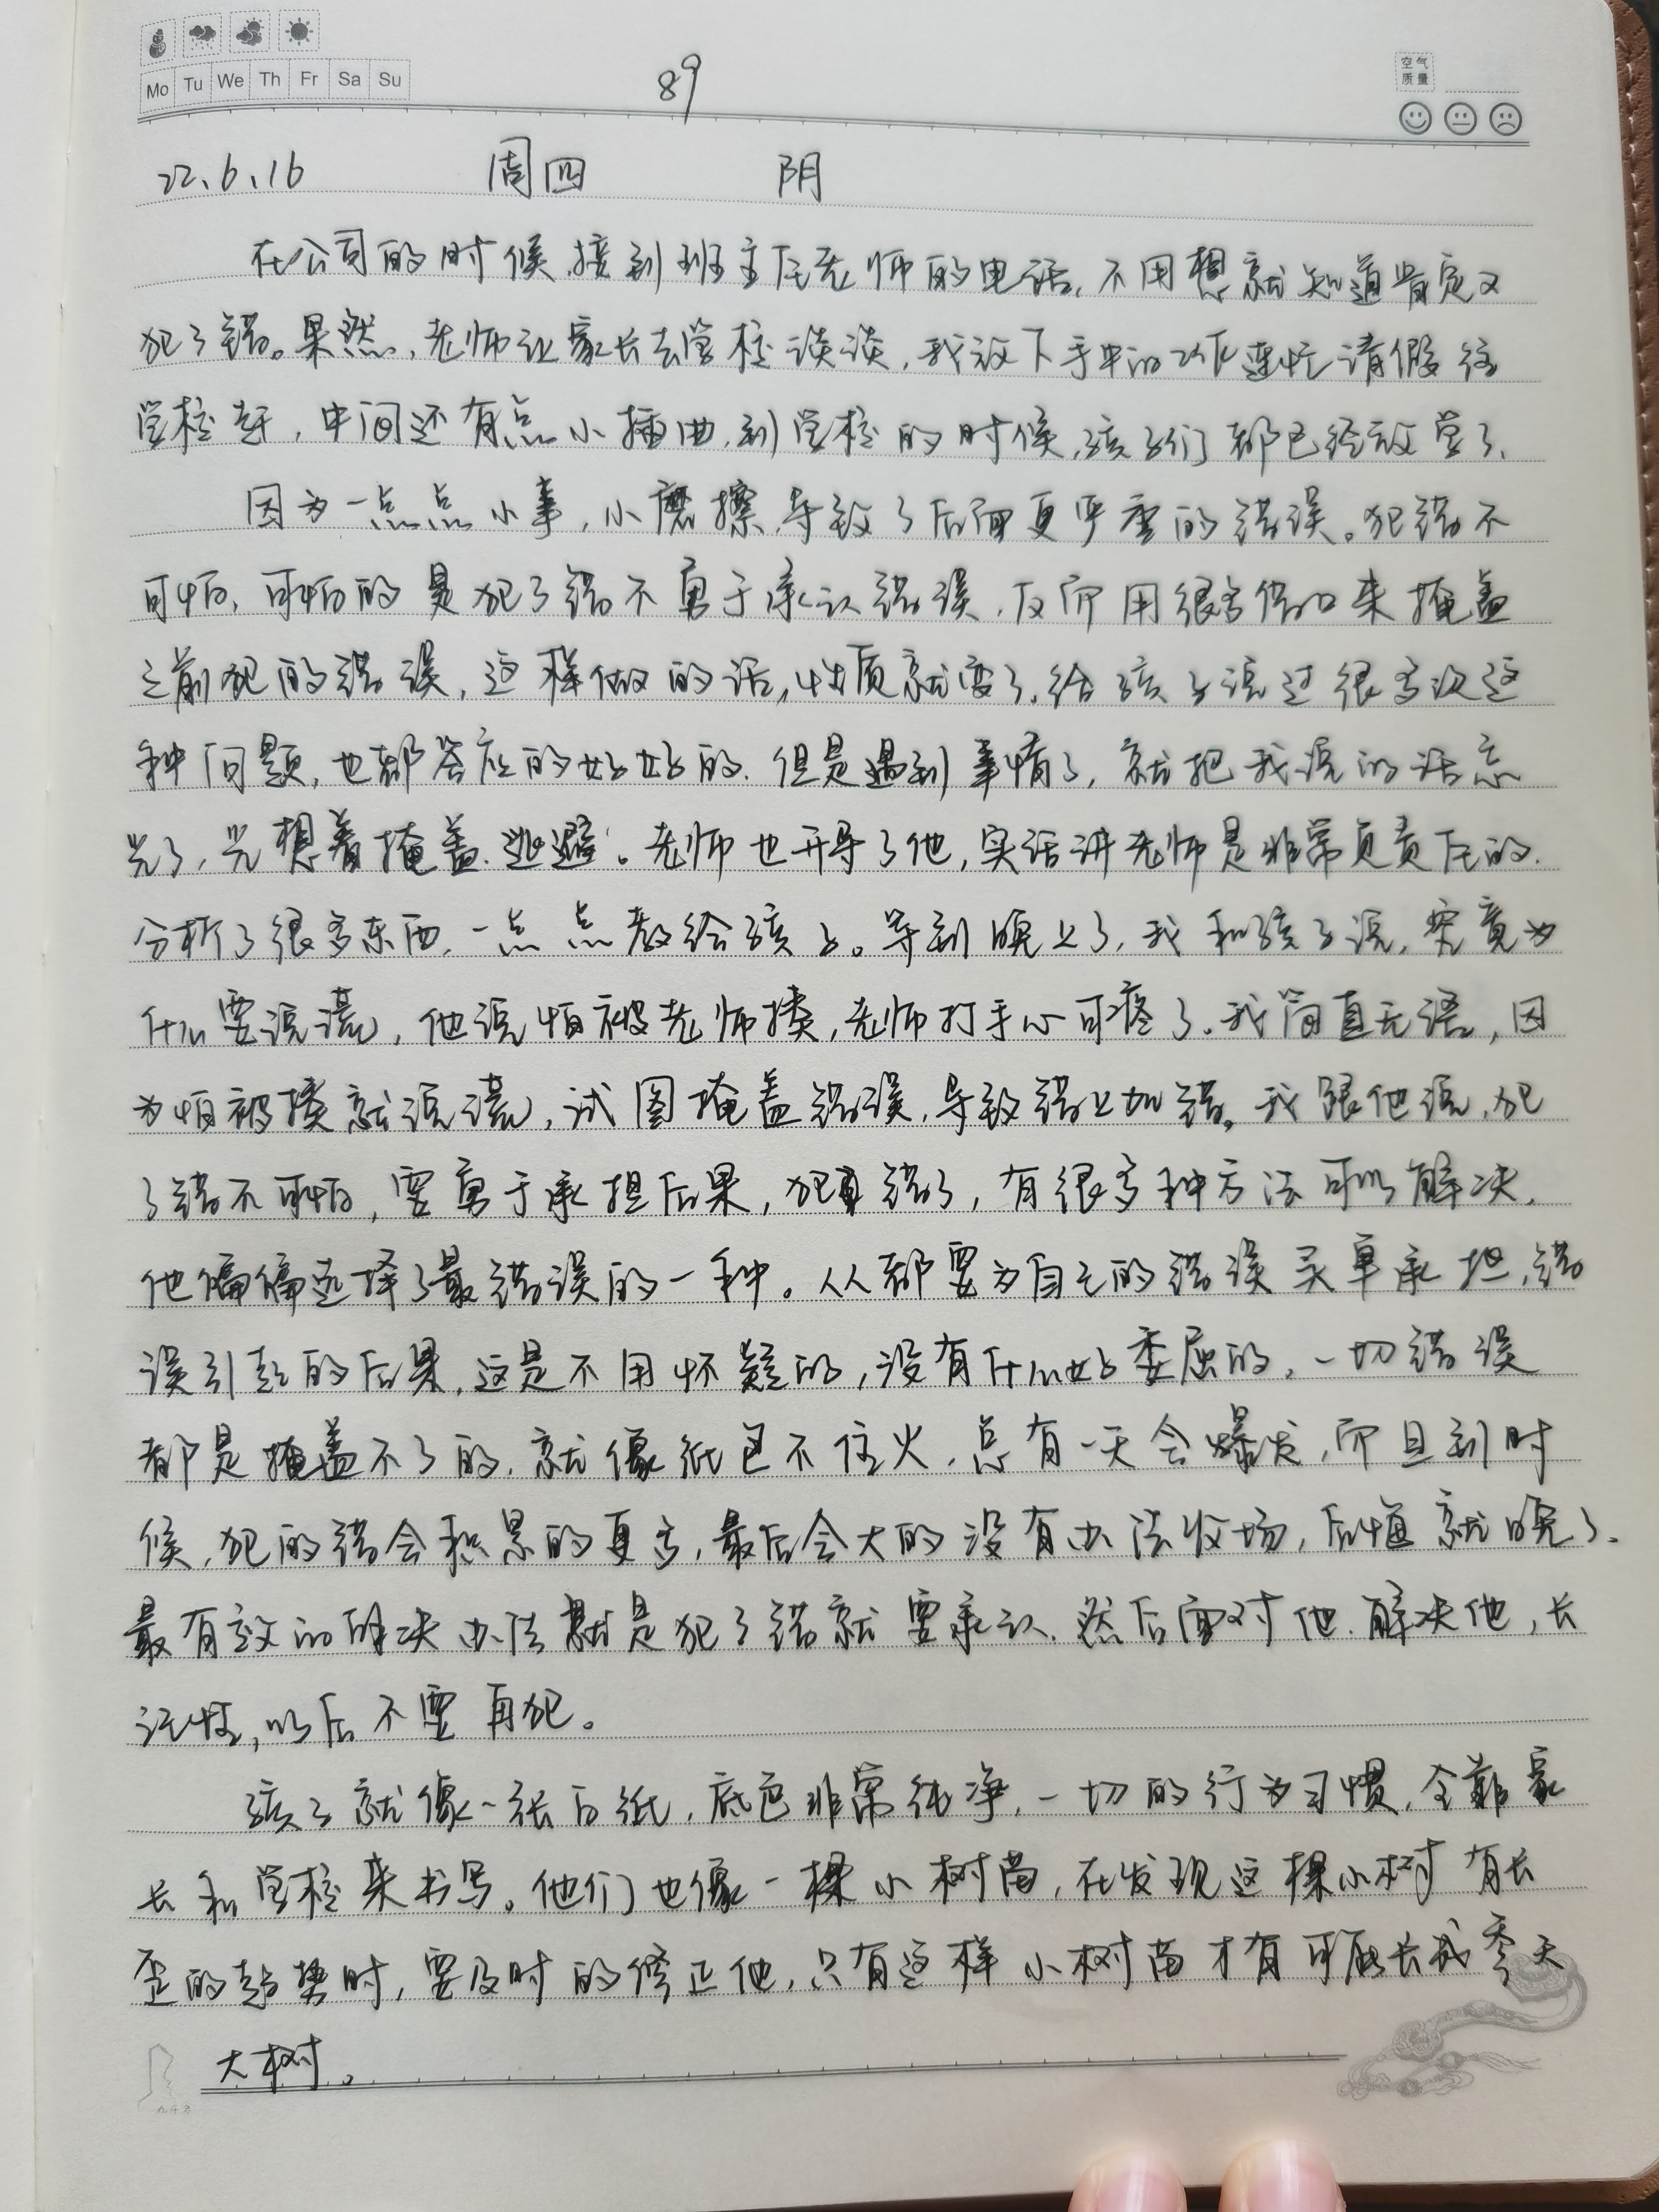 Mo Tu We Th Fr Sa Su
89
空气
质量
22、6、16 周四 阴
在公司的时候,接到班主任老师的电话,不用想就知道肯定又
犯了错。果然,老师让家长去学校谈谈,我放下手中的工作连忙请假往
学校赶,中间还有点小插曲,到学校的时候,孩子们都已经放学了、
因为一点点小事,小磨擦,导致了后面更严重的错误。犯错不
可怕,可怕的是犯了错不勇于承认错误,反而用很多借口来掩盖
之前犯的错误,这样做的话,性质就变了,给孩子说过很多次这
种问题,也都答应的好好的,但是遇到事情了,就把我说的话忘
光了,光想着掩盖、逃避。老师也开导了他,实话讲老师是非常负责任的.
分析了很多东西,一点点教给孩子。等到晚上了,我和孩子说,究竟为
什么要说谎,他说怕被老师揍,老师打手心可疼了。我简直无语,因
为怕被揍就说谎,试图掩盖错误,导致错上加错。我跟他说,犯
了错不可怕,要勇于承担后果,犯错了,有很多种方法可以解决,
他偏偏选择了最错误的一种。人人都要为自己的错误买单承担,错
误引起的后果,这是不用怀疑的,没有什么好委屈的,一切错误
都是掩盖不了的,就像纸包不住火,总有一天会爆发,而且到时
候,犯的错会积累的更多,最后会大的没有办法收场,后悔就晚了、
最有效的解决办法就是犯了错就要承认,然后面对他.解决他,长
记性,以后不要再犯。
孩子就像一张白纸,底色非常纯净,一切的行为习惯,全靠家
长和学校来书写。他们也像一棵小树苗,在发现这棵小树有长
歪的趋势时,要及时的修正他,只有这样小树苗才有可能长成参天
大树。